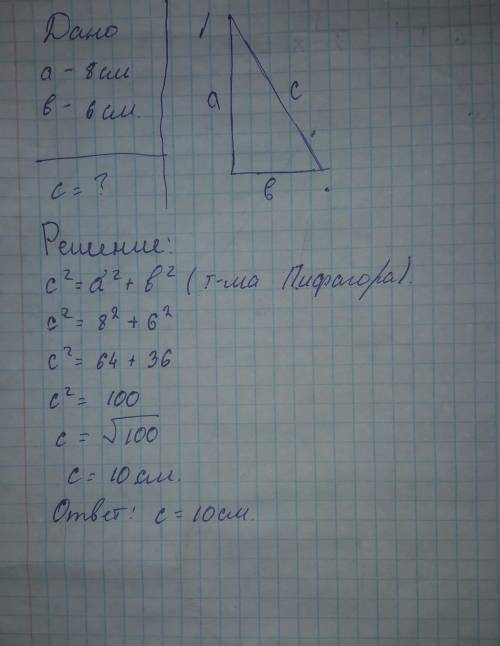 Дано
а - 8 см
в - 6 см.
с = ?
а
с
в
Решение:
с² = а² + в² (т-ма Пифагора).
с² = 8² + 6²
с² = 64 + 36
с² = 100
с = √100
с = 10 см.
Ответ: с = 10 см.